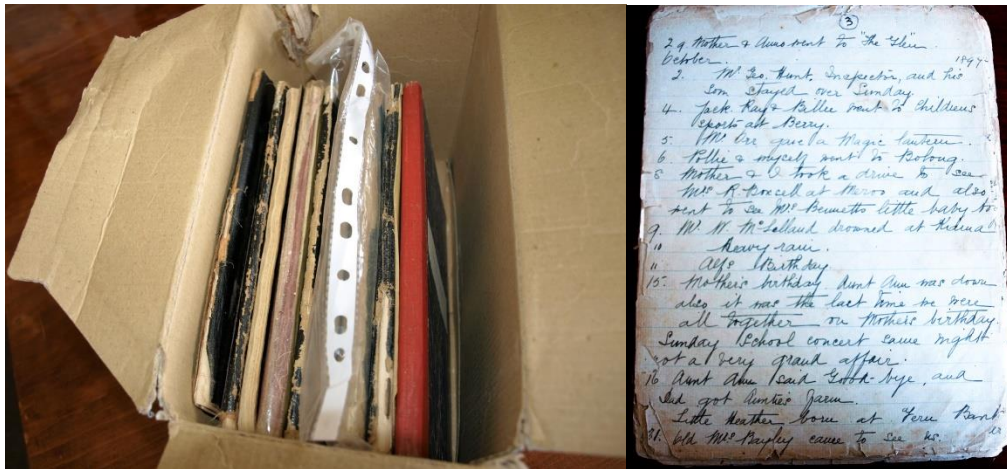 3
29. Mother & Aunt went to "The Glen".
October. 1897-
2. Mr Geo. Hunt. Inspector, and his
son stayed over Sunday.
4. Jack Ray & Billie went to Childrens
sports at Berry.
5. Mr Orr give a Magic lantern.
6 Pollie & myself went to Bolong.
8 Mother & I took a drive to see
Mrs R. Boxsell at Meroo and also
went to see Mrs Bennetts little baby
9. Mr W. McLelland drowned at Kiama
10 heavy rain.
11 Alf's Birthday
15. Mother's birthday. Aunt Ann was down
also it was the last time we were
all together on Mothers birthday.
Sunday School concert same night
not a very grand affair.
16 Aunt Ann said Good-bye, and
Sid got Auntie's Farm.
Little Heather born at Fern Bank
31. Old Mrs Bayley came to see us.